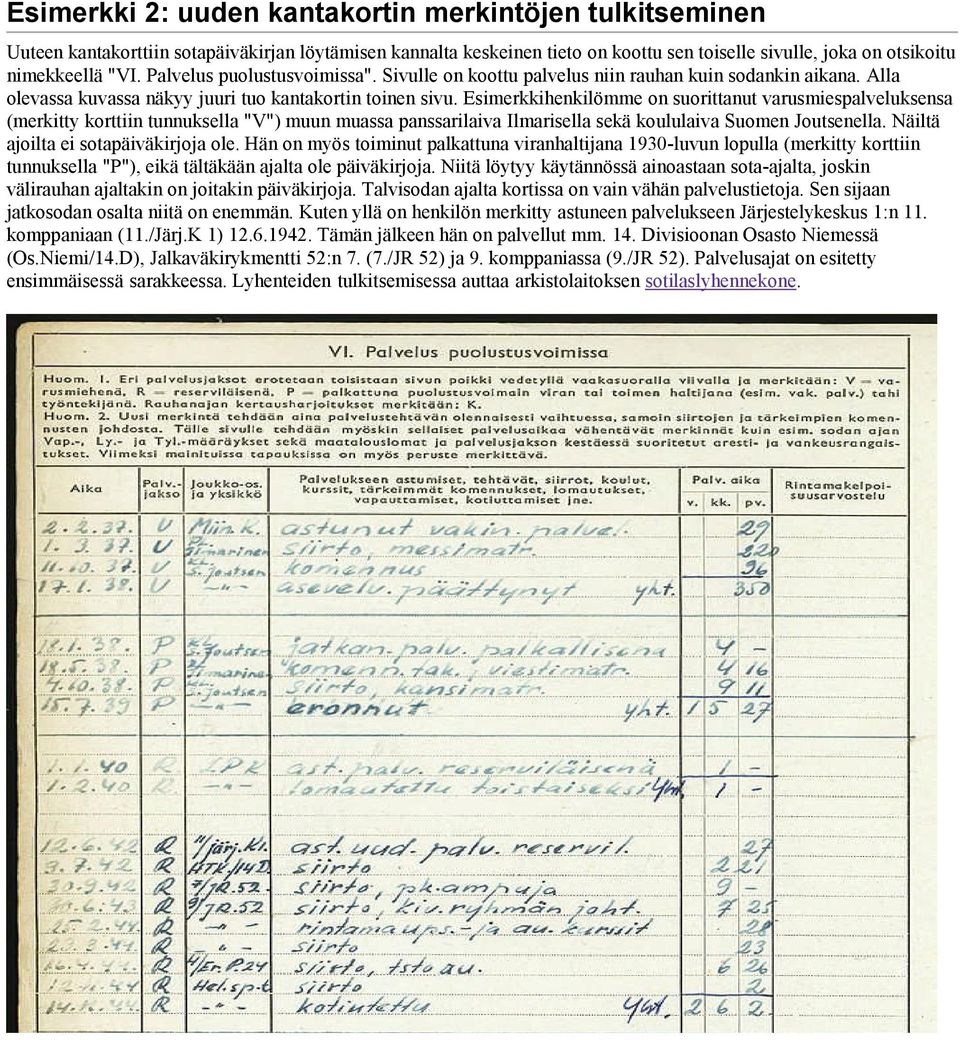 Esimerkki 2: uuden kantakortin merkintöjen tulkitseminen
Uuteen kantakorttiin sotapäiväkirjan löytämisen kannalta keskeinen tieto on koottu sen toiselle sivulle, joka on otsikoitu
nimekkeellä "VI. Palvelus puolustusvoimissa". Sivulle on koottu palvelus niin rauhan kuin sodankin aikana. Alla
olevassa kuvassa näkyy juuri tuo kantakortin toinen sivu. Esimerkkihenkilömme on suorittanut varusmiespalveluksensa
(merkitty korttiin tunnuksella "V") muun muassa panssarilaiva Ilmarisella sekä koululaiva Suomen Joutsenella. Näiltä
ajoilta ei sotapäiväkirjoja ole. Hän on myös toiminut palkattuna viranhaltijana 1930-luvun lopulla (merkitty korttiin
tunnuksella "P"), eikä tältäkään ajalta ole päiväkirjoja. Niitä löytyy käytännössä ainoastaan sota-ajalta, joskin
välirauhan ajaltakin on joitakin päiväkirjoja. Talvisodan ajalta kortissa on vain vähän palvelustietoja. Sen sijaan
jatkosodan osalta niitä on enemmän. Kuten yllä on henkilön merkitty astuneen palvelukseen Järjestelykeskus 1:n 11.
komppaniaan (11./Järj.K 1) 12.6.1942. Tämän jälkeen hän on palvellut mm. 14. Divisioonan Osasto Niemessä
(Os.Niemi/14.D), Jalkaväkirykmentti 52:n 7. (7./JR 52) ja 9. komppaniassa (9./JR 52). Palvelusajat on esitetty
ensimmäisessä sarakkeessa. Lyhenteiden tulkitsemisessa auttaa arkistolaitoksen sotilaslyhennekone.
VI. Palvelus puolustusvoimissa
Huom. 1. Eri palvelusjaksot erotetaan toisistaan sivun poikki vedetyllä vaakasuoralla viivalla ja merkitään: V = va-
rusmiehenä, R = reserviläisenä, P = palkattuna puolustusvoimain viran tai toimen haltijana (esim. vak. palv.) tahi
työntekijänä. Rauhanajan kertausharjoitukset merkitään: K.
Huom. 2. Uusi merkintä tehdään aina palvelustehtävän olennaisesti vaihtuessa, samoin siirtojen ja tärkeimpien komen-
nusten johdosta. Tälle sivulle tehdään myöskin sellaiset palvelusaikaa vähentävät merkinnät kuin esim. sodan ajan
Vap.-, Ly.- ja Tyl.-määräykset sekä maatalouslomat ja palvelusjakson kestäessä suoritetut aresti- ja vankeusrangais-
tukset. Viimeksi mainituissa tapauksissa on myös peruste merkittävä.
Aika Palv.-jakso Joukko-os. ja yksikkö Palvelukseen astumiset, tehtävät, siirrot, koulut, kurssit, tärkeimmät komennukset, lomautukset, vapauttamiset, kotiuttamiset jne. Palv. aika v. kk. pv. Rintamakelpoi-suusarvostelu
2.2.37. V Miin.K. astunut vakin. palvel. 29
1.3.37. V PL. Ilmarinen siirto, messimatr. 220
11.10.37. V KL. S.Joutsen komennus 96
17.1.38. V -"- asevelv. päättynyt yht. 350
18.1.38. P KL. S.Joutsen jatkan. palv. palkallisena 4 -
18.5.38. P Ilmarinen komenn. tak., viestimatr. 4 16
4.10.38. P S.Joutsen siirto, kansimatr. 9 11
15.7.39 P -"- eronnut yht. 1 5 27
1.1.40 R LPK ast. palv. reserviläisenä 1 -
1.2.40 R -"- lomautettu toistaiseksi Yht. 1 -
12.6.42 R 11/järj.K1. ast. uud. palv. reservil. 27
9.7.42 R HTK/14D. siirto 2 21
30.9.42 R 7/JR.52. siirto, pk.ampuja 9 -
30.6.43 R 9/JR.52 siirto, kiv.ryhmän joht. 7 25
25.2.44. R -"- rintamaups.- ja au. kurssit 28
23.3.44. R -"- siirto 23
16.4.44. R 4/Er.P.24 siirto, tsto au. 6 26
12.11.44 R Hel.sp.t siirto 2
14.11.44. R -"- kotiutettu Yht. 2 6 2